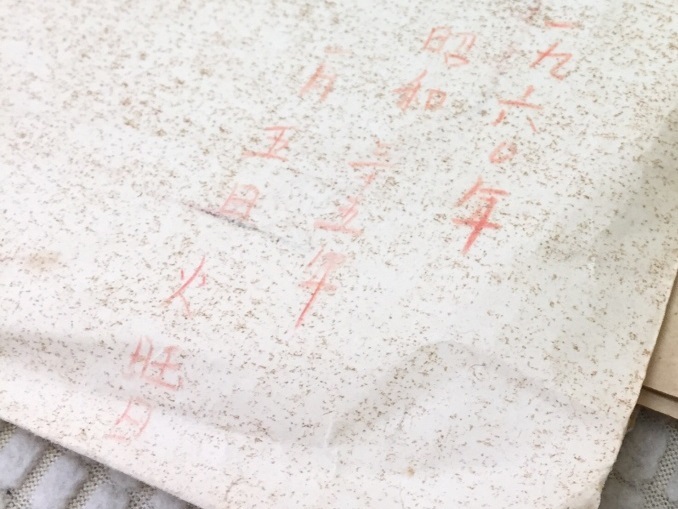 一九六〇年
昭和三十五年
一月五日火旺日